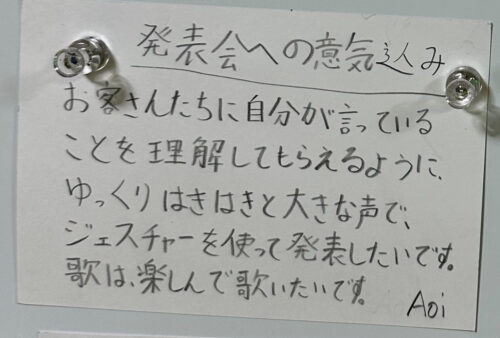 発表会への意気込み
お客さんたちに自分が言っている
ことを理解してもらえるように、
ゆっくりはきはきと大きな声で、
ジェスチャーを使って発表したいです。
歌は、楽しんで歌いたいです。
Aoi